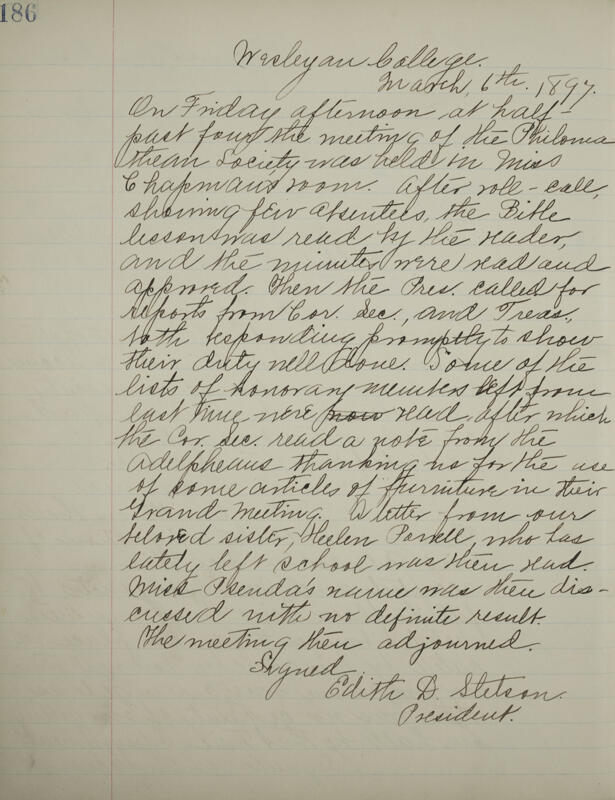 186
Wesleyan College.
March, 6th. 1897.
On Friday afternoon at half-
past four the meeting of the Philoma
thean Society was held in Miss
Chapman's room. After roll-call,
showing few absentees, the Bible
lesson was read by the reader,
and the minutes were read and
approved. Then the Pres. called for
reports from Cor. Sec., and Treas.,
both responding promptly to show
their duty well done. Some of the
lists of honorary members left from
last time were now read, after which
the Cor. Sec. read a note from the
Adelpheans thanking us for the use
of some articles of furniture in their
Grand Meeting. A letter from our
beloved sister, Heelen Powell, who has
lately left school was then read.
Miss name was then dis-
cussed with no definite result.
The meeting then adjourned.
Signed
Edith D. Stetson.
President.